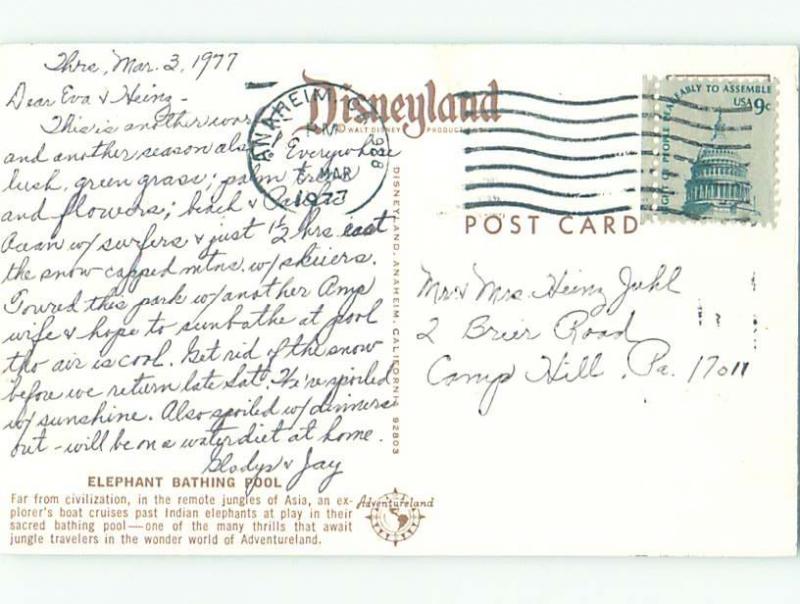 Thrs, Mar. 3, 1977
Dear Eva & Heinz -
This is another
and another season also Everywhere
lush, green grass; palm trees
and flowers; beach & Pacific
Ocean w/ surfers & just 1½ hrs east
the snow-capped mtns w/ skiiers.
Toured this park w/ another Amp
wife & hope to sunbathe at pool
tho air is cool. Get rid of the snow
before we return late Satd. We're spoiled
w/ sunshine. Also spoiled w/ dinners
out - will be on a water diet at home.
Gladys & Jay
ELEPHANT BATHING POOL
Far from civilization, in the remote jungles of Asia, an ex-
plorer's boat cruises past Indian elephants at play in their
sacred bathing pool—one of the many thrills that await
jungle travelers in the wonder world of Adventureland.
Adventureland
DISNEYLAND, ANAHEIM, CALIFORNIA 92803
Disneyland
© WALT DISNEY PRODUCTIONS
ANAHEIM, CA
PM
MAR
1977
928
POST CARD
RIGHT OF PEOPLE PEACEABLY TO ASSEMBLE
USA 9c
Mr & Mrs. Heinz Juhl
2 Brier Road
Camp Hill, Pa. 17011